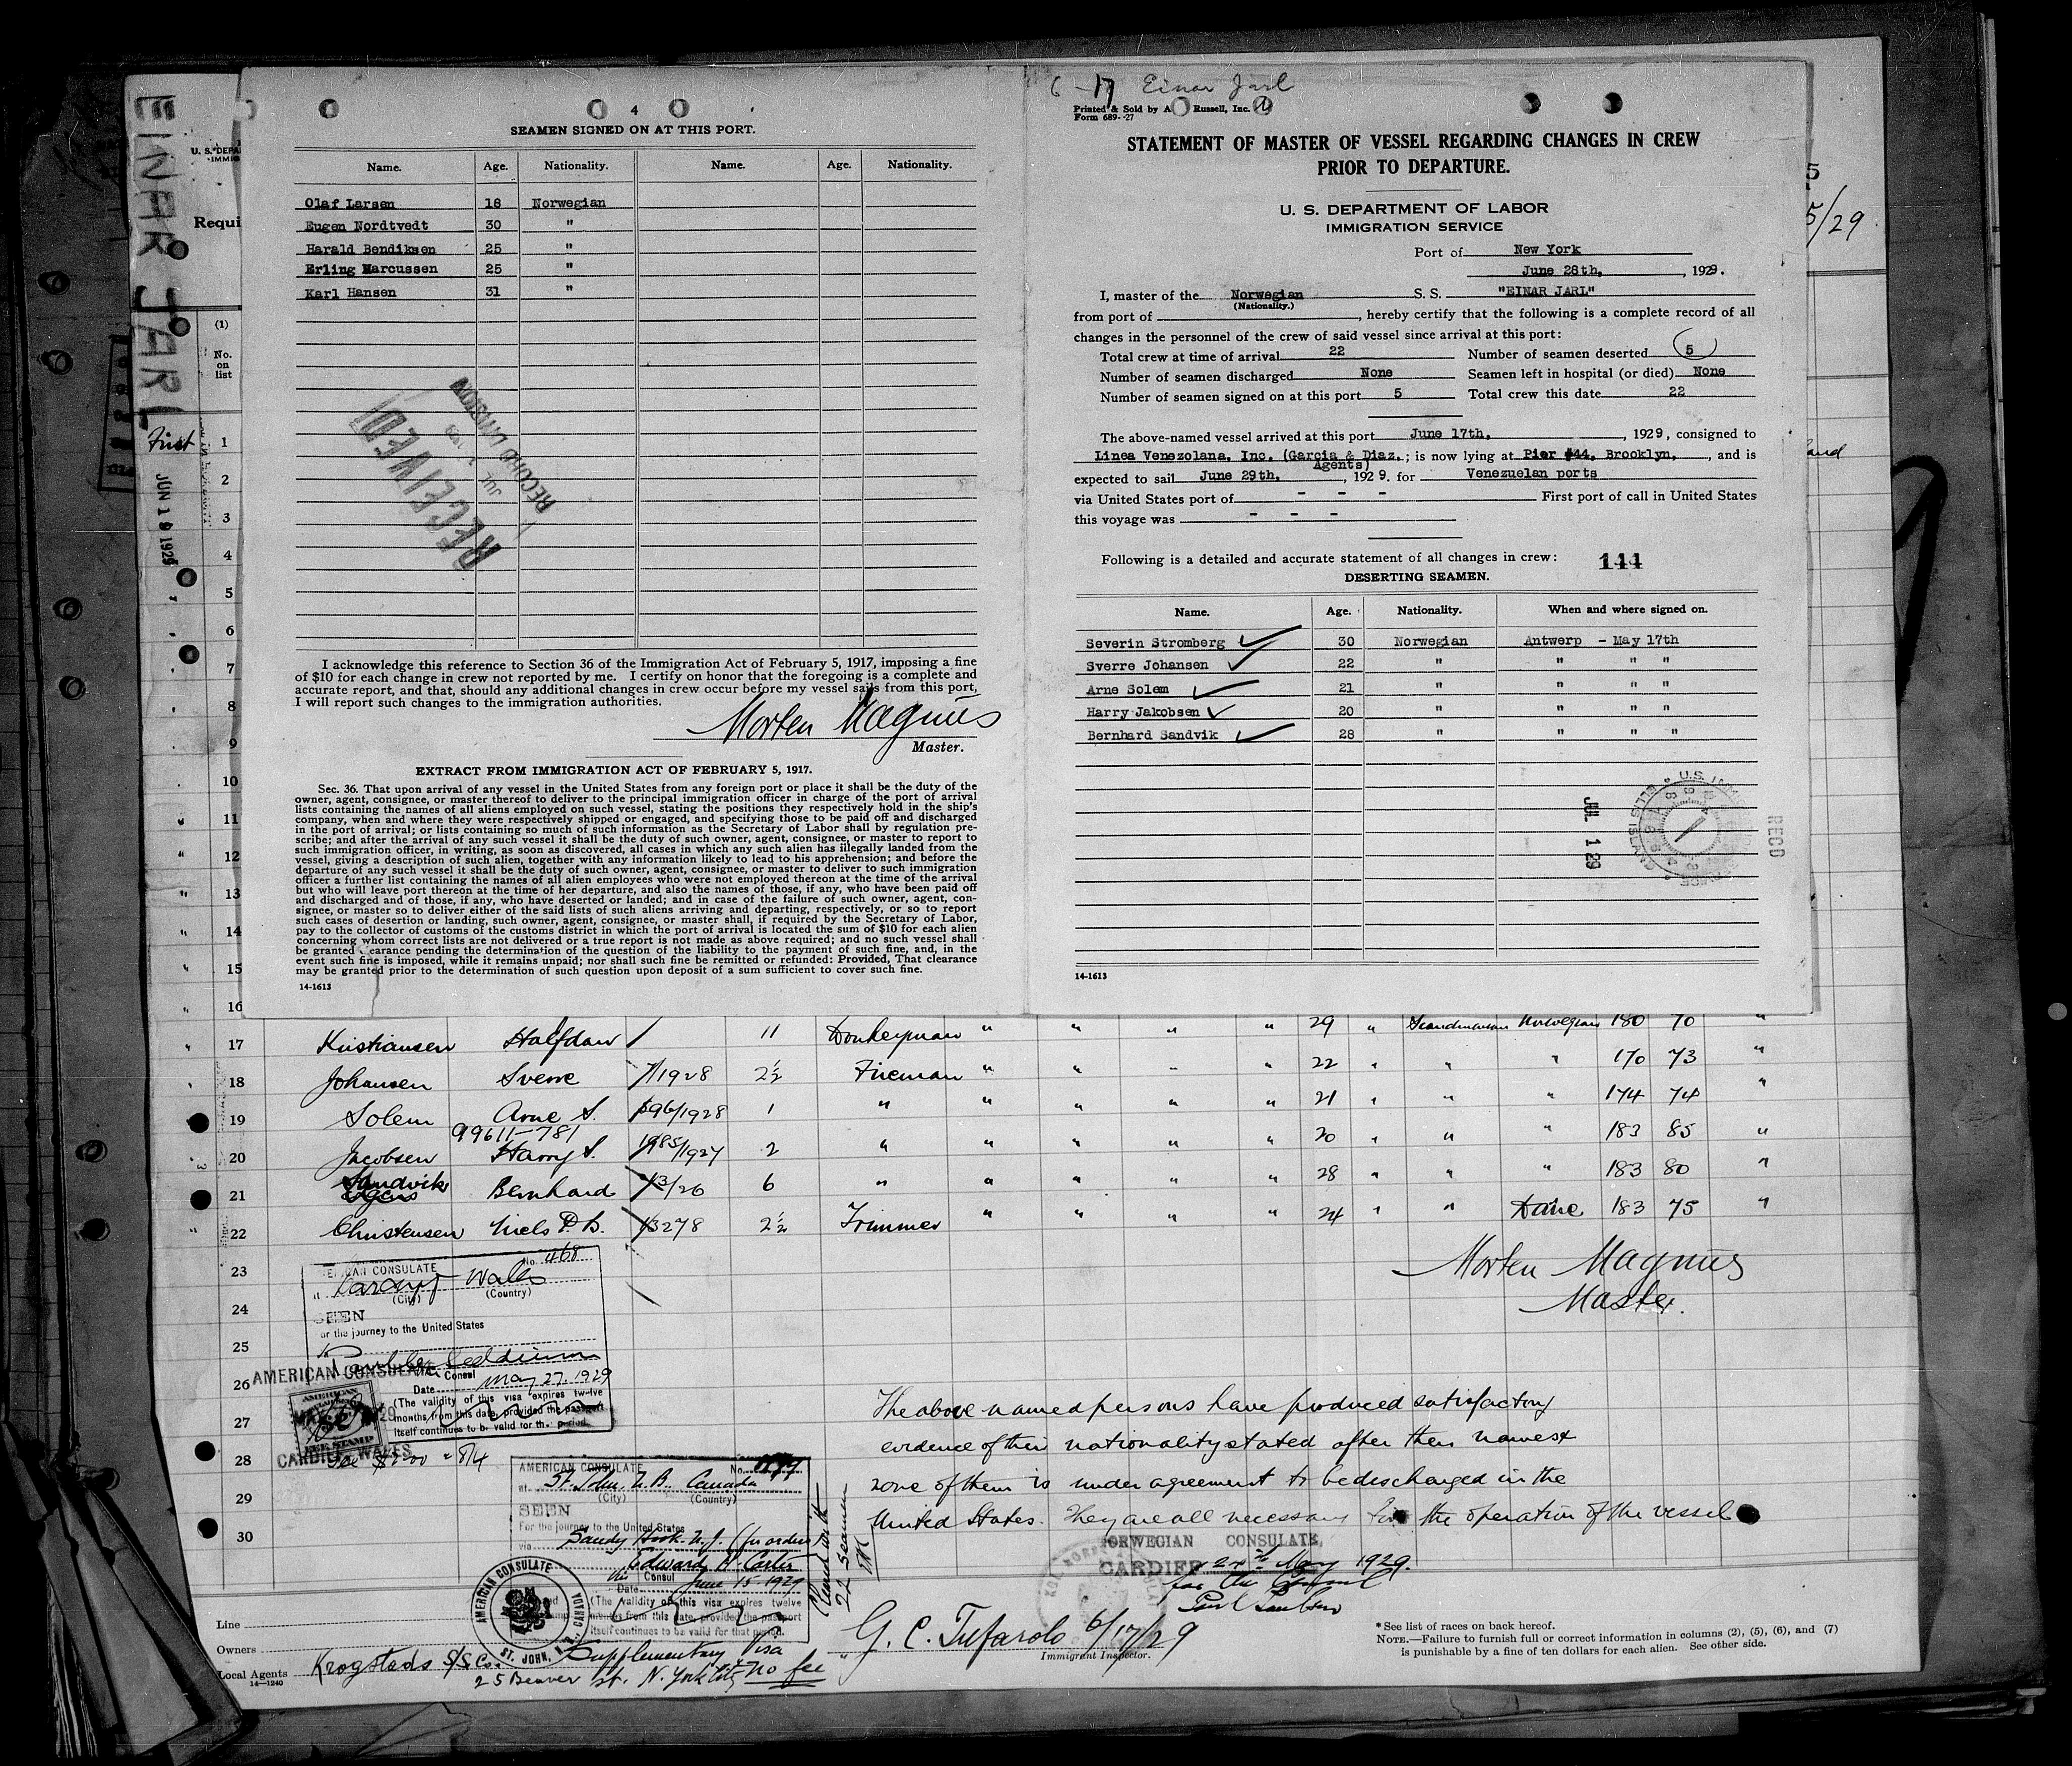 EINAR JARL
U. S. DEPA
IMMIG
Requi
(1)
No.
on
list
First
JUN 19 1929
4
SEAMEN SIGNED ON AT THIS PORT.
Name. Age. Nationality. Name. Age. Nationality.
Olaf Larsen 18 Norwegian
Eugen Nordtvedt 30 "
Harald Bendiksen 25 "
Erling Marcussen 25 "
Karl Hansen 31 "
RECEIVED
JUL 1 1929
RECORD DIVISION
I acknowledge this reference to Section 36 of the Immigration Act of February 5, 1917, imposing a fine
of $10 for each change in crew not reported by me. I certify on honor that the foregoing is a complete and
accurate report, and that, should any additional changes in crew occur before my vessel sails from this port,
I will report such changes to the immigration authorities.
Morten Magnus
Master.
EXTRACT FROM IMMIGRATION ACT OF FEBRUARY 5, 1917.
Sec. 36. That upon arrival of any vessel in the United States from any foreign port or place it shall be the duty of the
owner, agent, consignee, or master thereof to deliver to the principal immigration officer in charge of the port of arrival
lists containing the names of all aliens employed on such vessel, stating the positions they respectively hold in the ship's
company, when and where they were respectively shipped or engaged, and specifying those to be paid off and discharged
in the port of arrival; or lists containing so much of such information as the Secretary of Labor shall by regulation pre-
scribe; and after the arrival of any such vessel it shall be the duty of such owner, agent, consignee, or master to report to
such immigration officer, in writing, as soon as discovered, all cases in which any such alien has illegally landed from the
vessel, giving a description of such alien, together with any information likely to lead to his apprehension; and before the
departure of any such vessel it shall be the duty of such owner, agent, consignee, or master to deliver to such immigration
officer a further list containing the names of all alien employees who were not employed thereon at the time of the arrival
but who will leave port thereon at the time of her departure, and also the names of those, if any, who have been paid off
and discharged and of those, if any, who have deserted or landed; and in case of the failure of such owner, agent, con-
signee, or master so to deliver either of the said lists of such aliens arriving and departing, respectively, or so to report
such cases of desertion or landing, such owner, agent, consignee, or master shall, if required by the Secretary of Labor,
pay to the collector of customs of the customs district in which the port of arrival is located the sum of $10 for each alien
concerning whom correct lists are not delivered or a true report is not made as above required; and no such vessel shall
be granted clearance pending the determination of the question of the liability to the payment of such fine, and, in the
event such fine is imposed, while it remains unpaid; nor shall such fine be remitted or refunded: Provided, That clearance
may be granted prior to the determination of such question upon deposit of a sum sufficient to cover such fine.
14-1613
6-17 Einar Jarl
Printed & Sold by A Russell, Inc.
Form 689--27
STATEMENT OF MASTER OF VESSEL REGARDING CHANGES IN CREW
PRIOR TO DEPARTURE.
U. S. DEPARTMENT OF LABOR
IMMIGRATION SERVICE
Port of New York
June 28th, , 1929.
I, master of the Norwegian S. S. "EINAR JARL"
(Nationality.)
from port of , hereby certify that the following is a complete record of all
changes in the personnel of the crew of said vessel since arrival at this port:
Total crew at time of arrival 22 Number of seamen deserted 5
Number of seamen discharged None Seamen left in hospital (or died) None
Number of seamen signed on at this port 5 Total crew this date 22
The above-named vessel arrived at this port June 17th, , 1929, consigned to
Linea Venezolana, Inc. (Garcia & Diaz. ; is now lying at Pier #44, Brooklyn, , and is
Agents)
expected to sail June 29th, , 1929. for Venezuelan ports
via United States port of - - - First port of call in United States
this voyage was - - -
Following is a detailed and accurate statement of all changes in crew: 144
DESERTING SEAMEN.
Name. Age. Nationality. When and where signed on.
Severin Stromberg 30 Norwegian Antwerp - May 17th
Sverre Johansen 22 " " " "
Arne Solem 21 " " " "
Harry Jakobsen 20 " " " "
Bernhard Sandvik 28 " " " "
JUL 1 29
RECD
14-1613
5
5/29
and
1
2
3
4
5
6
7
8
9
10
11
12
13
14
15
16
17 Kristiansen Halfdan 11 Donkeyman " " " " 29 " Scandinavian Norwegian 180 70 "
18 Johansen Sverre 7/1928 2½ Fireman " " " 22 " " " 170 73 "
19 Solem Arne S. 96/1928 1 " " " " " 21 " " " 174 74 "
99611-781
20 Jacobsen Harry S. 1985/1927 2 " " " " " 20 " " " 183 85 "
21 Sandvik Bernhard 3/26 6 " " " " " 28 " " " 183 80 "
22 Christensen Niels P. B. 3278 2½ Trimmer " " " " 24 " " Dane 183 75 "
23
24
25
26
27
28
29
30
Morten Magnus
Master.
AMERICAN CONSULATE No. 468
Cardiff Wales
(City) (Country)
SEEN
For the journey to the United States
Consul
Date May 27, 1929
(The validity of this visa expires twelve
months from this date, provided the passport
itself continues to be valid for that period.
AMERICAN CONSULATE
CARDIFF, WALES
FEE STAMP
AMERICAN CONSULATE No.
at St. John, N.B. Canada
(City) (Country)
SEEN
For the journey to the United States
via Sandy Hook N.J. (for orders)
Edward A. Carter
Consul
Date June 15 1929
(The validity of this visa expires twelve
months from this date, provided the passport
itself continues to be valid for that period.
AMERICAN CONSULATE
ST. JOHN, N.B., CANADA
Supplementary Visa
No fee
22 seamen
The above named persons have produced satisfactory
evidence of their nationality stated after their names &
none of them is under agreement to be discharged in the
United States. They are all necessary for the operation of the vessel
NORWEGIAN CONSULATE,
CARDIFF 27th May 1929.
for the Consul
G. C. Tufarolo 6/17/29
Immigrant Inspector.
Line
Owners
Local Agents Krogstads S/S Co. 25 Beaver St. N. York City
14-1240
* See list of races on back hereof.
NOTE.—Failure to furnish full or correct information in columns (2), (5), (6), and (7)
is punishable by a fine of ten dollars for each alien. See other side.